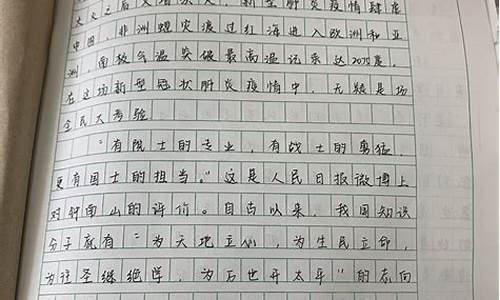 大火之后又增杀人，新型肺炎疫情肆虐
中国，非洲蝗灾渡过红海进入欧洲和亚
洲，南极气温突破最高温记录达20.75度。
在这场新型冠状肺炎疫情中，无疑是场
全民大考验
“有院士的专业，有战士的勇猛，
更有国士的担当。”这是人民日报微博上
对钟南山的评价。自古以来，我国知识
分子就有“为天地立心，为生民立命，
为往圣继绝学，为万世开太平”的志向